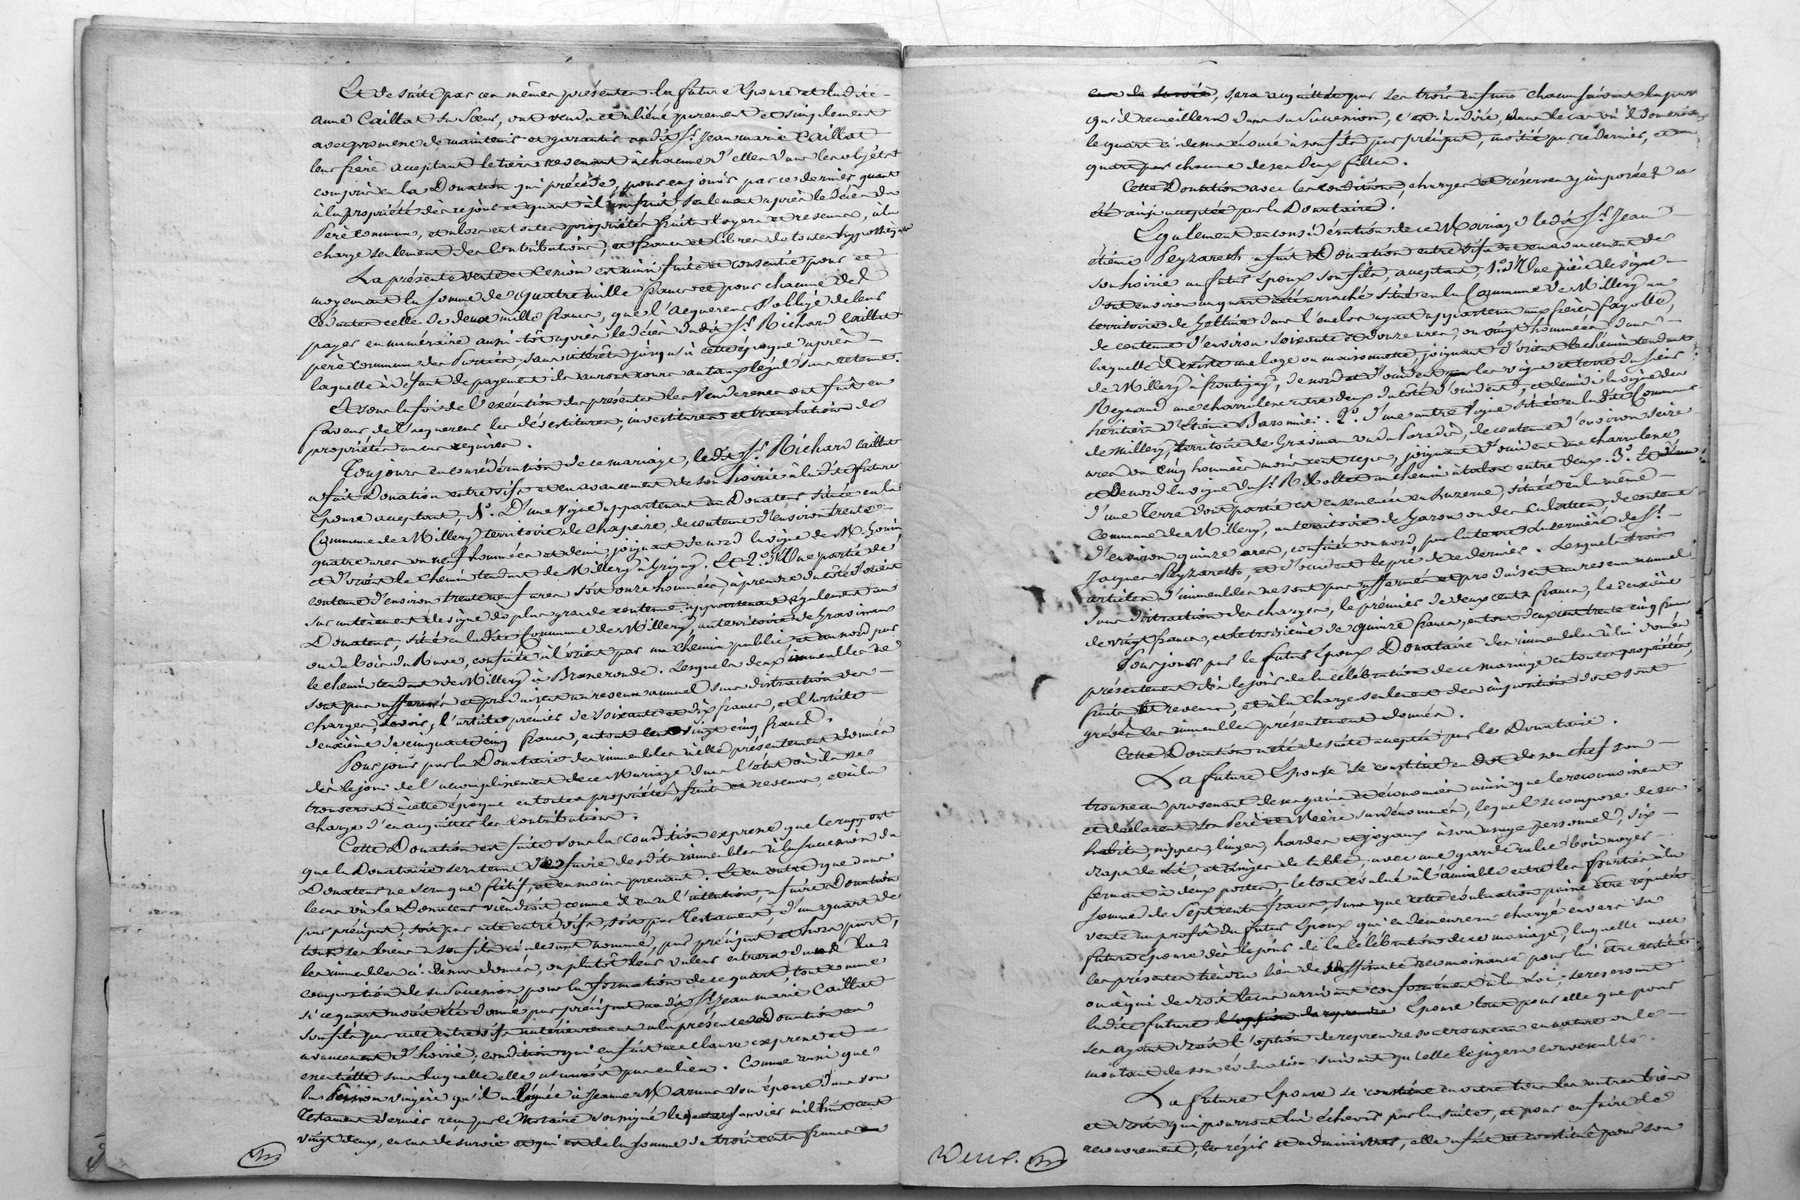 Et de suite par ces mêmes présentes la future Epouse et ladite
anne Caillat sa Sœur, ont vendu et aliéné purement et simplement
avec promesse de maintenir et garantir audit Sr. Jean marie Caillat
leur frère acceptant le tiers revenant à chacune d'elles dans les objets
compris en la Donation qui précède, pour en jouir par ce dernier quant
à la propriété dès ce jour et quant à l'usufruit seulement après le décès du
Père commun, et alors en toutes propriétés fruits loyers et revenus, à la
charge seulement des Contributions, et francs et libres de toutes hypothèques
La présente vente et Cession est ainsi faite et consentie pour et
moyennant la somme de quatre mille francs et pour chacune des
celle de deux mille francs, que l'acquereur s'oblige de leur
payer en numéraire aussi-tôt après le décès dudit Sr. Richard Caillat
père commun des Parties, sans intérêts jusqu'à cette époque après
laquelle à défaut de payement ils auront cours au taux légal sans retenue.
Et sous la foi de l'exécution des présentes les Venderesses ont fait en
faveur de l'acquereur les dévestitures, investitures et translations de
propriétés en cas requises.
Toujours en considération de ce mariage, ledit Sr. Richard Caillat
a fait Donation entre vifs et en avancement de son hoirie à ladite future
Epouse acceptant, 1o. D'une vigne appartenant au Donateur située en la
Commune de Millery territoire de Chapaize, de contenue d'environ trente
quatre ares ou neuf hommées et demie, joignant de nord la vigne de M. Gonin
et d'orient le chemin tendant de Millery à Grigny. Et 2o. D'Une partie de
contenue d'environ trente neuf ares soit onze hommées, à prendre du côté d'orient
sur un tenement de vigne de plus grande contenue appartenant également au
Donateur, situé en ladite Commune de Millery au territoire de Gravineux
ou du bois du Rura, confinée à l'orient par un chemin public et au nord par
le chemin tendant de Millery à Broneronde. Lesquels deux immeubles ne
sont pas affermés et produisent un revenu annuel sans distraction des
charges, savoir, l'article premier de soixante et dix francs, et l'article
deuxième de cinquante cinq francs, en tout cent vingt cinq francs.
Pour jouir par la Donataire des immeubles à elle présentement donnés
dès le jour de l'accomplissement de ce Mariage dans l'état où ils se
trouveront à cette époque en toutes propriétés fruits et revenus, et à la
charge d'en acquitter les contributions.
Cette Donation est faite sous la condition expresse que le rapport
que la Donataire sera tenue de faire desdits immeubles à la succession du
Donateur ne sera que fictif, et en moins prenant. Et en outre que dans
le cas où le Donateur viendroit comme il en a l'intention, a faire Donation
par préciput, soit par acte entre vifs, soit par Testament, d'un quart de
tous ses biens à son fils ci-dessus nommé, par préciput et hors part,
les immeubles ci-dessus donnés, ou plutôt leurs valeurs entrera dans la
composition de sa succession pour la formation de ce quart, tout comme
si ce quart avoit été donné par préciput audit Sr. Jean marie Caillat
son fils par acte entre vifs antérieurement à la présente Donation en
avancement d'hoirie, condition qui en fait une clause expresse et
essentielle sans laquelle elle n'auroit pas eu lieu. Comme aussi que
la Pension viagère qu'il a léguée à Jeanne Marie son épouse dans son
Testament dernier reçu par le Notaire soussigné le quatre janvier mil huit cent
vingt deux, en cas de survie et qui est de la somme de trois cents francs
cas de survie, sera acquittée par ses trois enfans chacun suivant la part
qu'il recueillera dans sa Succession, c'est-à-dire, dans le cas où il donneroit
le quart ci-dessus énoncé à son fils par préciput, moitié par ce dernier, et un
quart par chacune de ses deux filles.
Cette Donation avec les conditions, charges et réserves y imposées a
été ainsi acceptée par la Donataire.
Egalement en considération de ce Mariage ledit Sr. Jean
étiene Peyzareth a fait Donation entre vifs et en avancement de
son hoirie au futur époux son fils, acceptant, 1o. d'Une pièce de vigne
dont environ un quart est arraché située en la Commune de Millery au
territoire de dans l'enclos ayant appartenu aux frères fayolle,
de contenue d'environ soixante et douze ares, ou vingt hommées dans
laquelle il existe une loge ou maisonnette, joignant d'orient le chemin tendant
de Millery à Montagny, de nord et d'occident les vigne et terre du sieur
Reynaud une charrulière entre deux du côté d'occident, et de midi la vigne des
heritiers d'Etiene Baronnier. 2o. d'une autre Vigne située en ladite Commune
de Millery, territoire de Gravineux ou du Paradis, de contenue d'environ seize
ares ou cinq hommées moins cent ceps, joignant d'occident une charrulière
et de nord la vigne du Sr. Rollet un chemin à talon entre deux. 3o. Et
d'une Terre dont partie est ensemencée en luzerne, située en la même
Commune de Millery, au territoire de Garon ou des de contenue
d'environ quinze ares, confinée au nord par la terre Luzernière de Sr.
Jaques Peyzareth, et d'occident le pré de ce dernier. Lesquels trois
articles d'immeubles ne sont pas affermés et produisent un revenu annuel
sans distraction des charges, le premier de deux cents francs, le deuxième
de vingt francs, et le troisième de quinze francs, en tout deux cent trente cinq francs
Pour jouir par le futur Epoux Donataire des immeubles à lui donnés
présentement dès le jour de la célébration de ce mariage en toutes propriétés,
fruits et revenus, et à la charge seulement des impositions dont sont
grevés les immeubles présentement donnés.
Cette Donation a été de suite acceptée par le Donataire.
La future Epouse se constitue en dot de son chef son
trousseau provenant de ses gains et économies ainsi que le reconnoissent
et déclarent ses Père et Mère susdénommés, lequel se compose de ses
habits, nippes, linges, hardes et joyaux à son usage personnel, six
draps de lit, et linges de table, avec une garderobe bois noyer
fermant à deux portes, le tout évalué à l'amiable entre les parties à la
somme de Sept cents francs, sans que cette évaluation puisse être réputée
vente au profit du futur Epoux qui en demeurera chargé envers sa
future épouse dès le jour de la célébration de ce mariage, laquelle avec
les présentes tiendra lieu de suffisante reconnoissance pour lui être restitué
ou à qui de droit le cas arrivant conformément à la loi; se réservant
ladite future Epouse tant pour elle que pour
ses ayant droit l'option de reprendre son trousseau en nature ou le
montant de son évaluation suivant qu'elle le jugera convenable.
La future Epouse se constitue en outre tous les autres biens
et droits qui pourront lui échevoir par la suite, et pour en faire le
recouvrement, les régir et administrer, elle a fait et constitué pour son